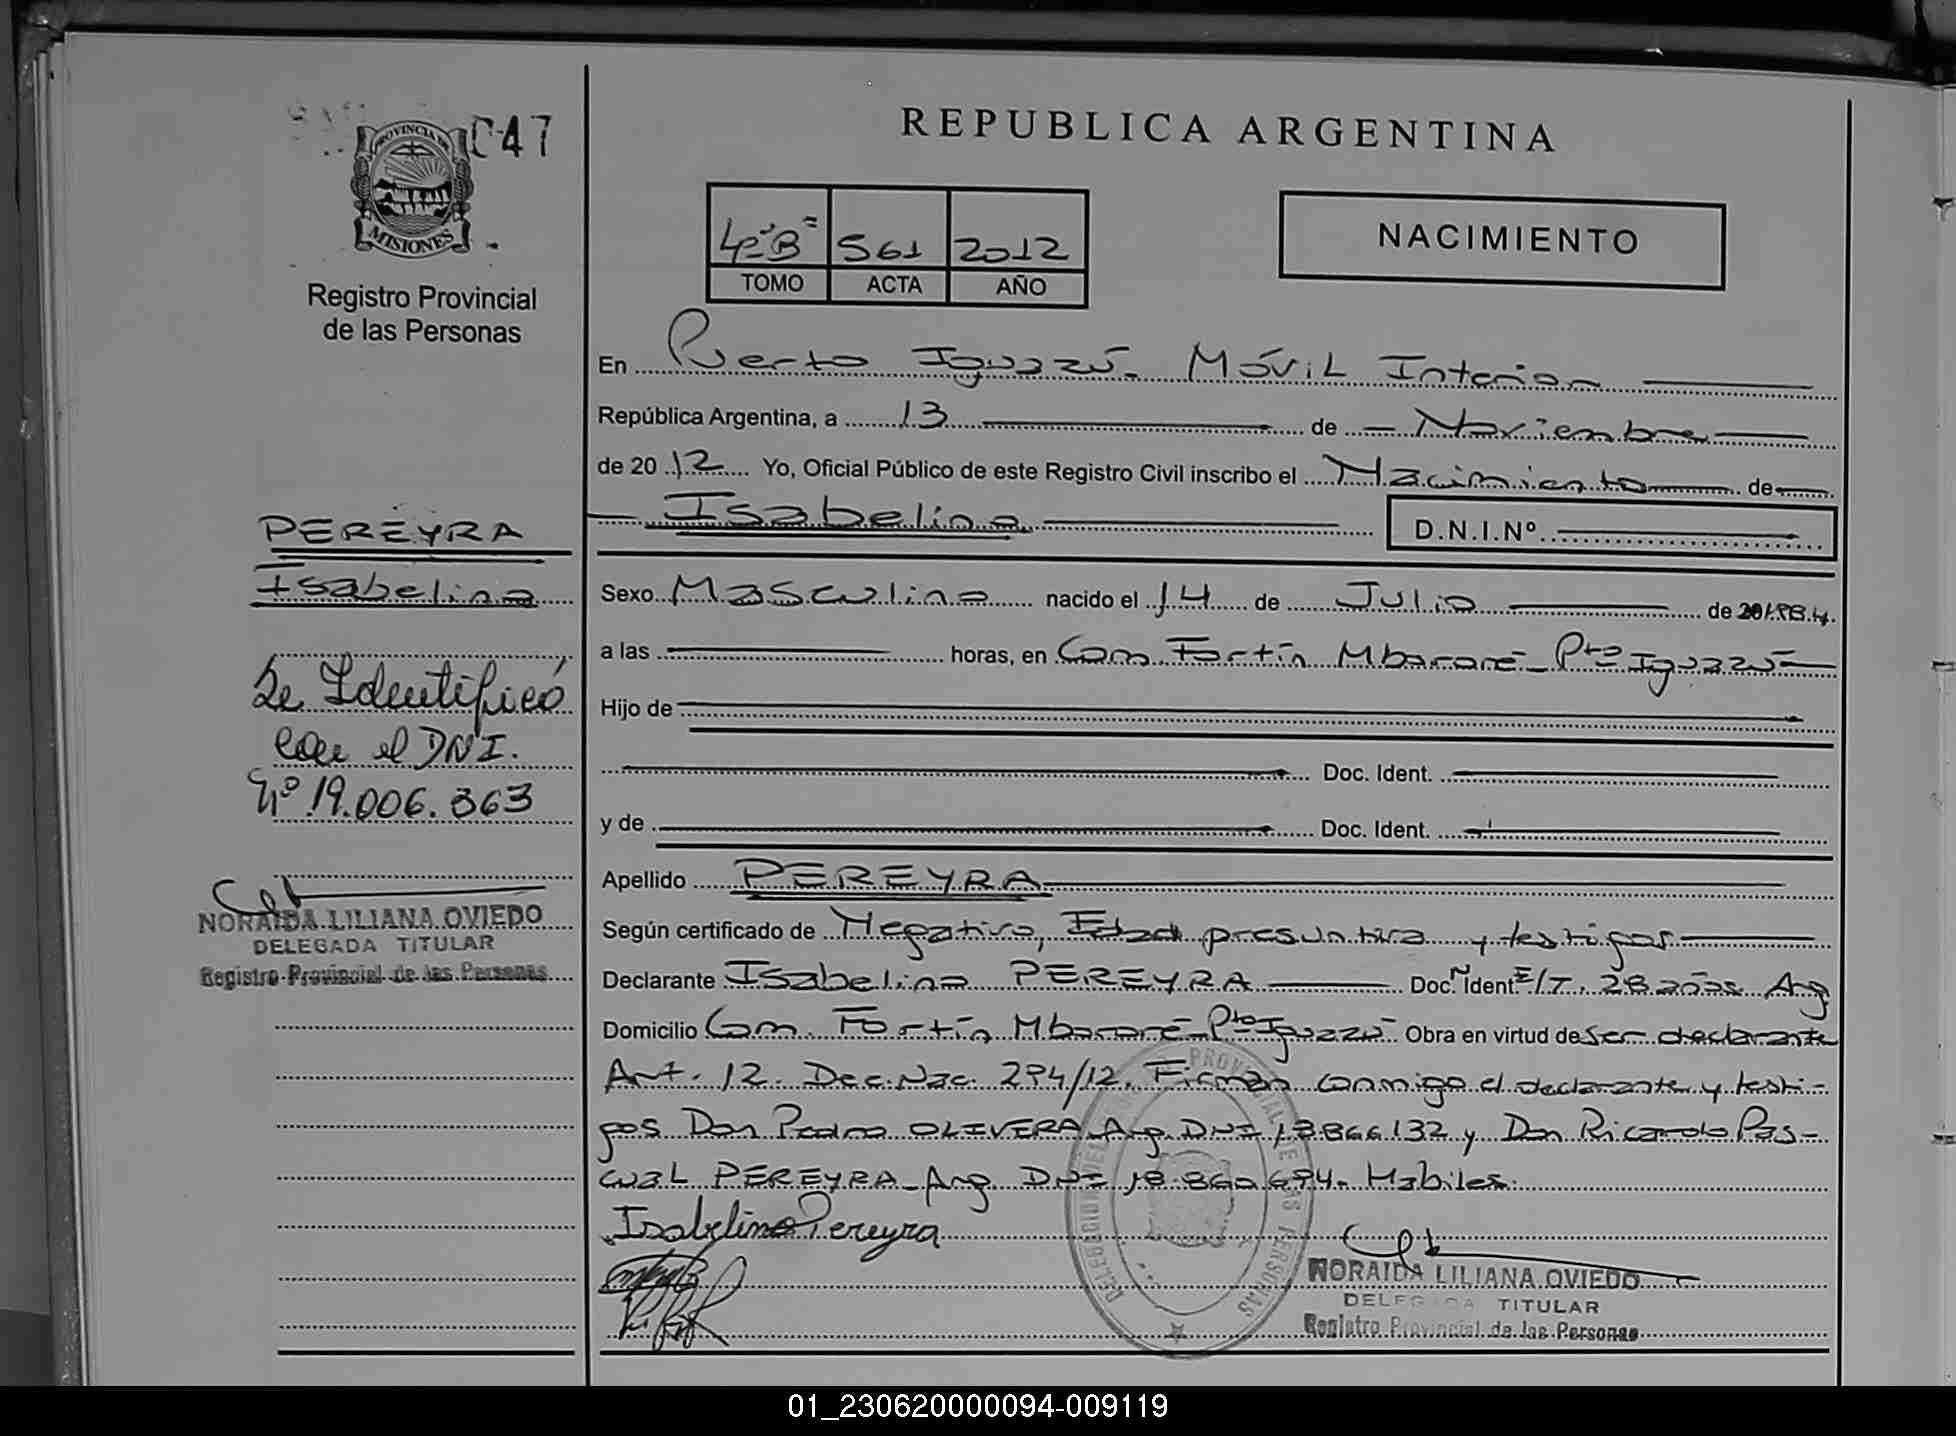 047
PROVINCIA DE
MISIONES
Registro Provincial
de las Personas
PEREYRA
Isabelino
Se Identificó
con el DNI.
Nº 19.006.363
NORAIDA LILIANA OVIEDO
DELEGADA TITULAR
Registro Provincial de las Personas
REPUBLICA ARGENTINA
4º "B" 561 2012
TOMO ACTA AÑO
NACIMIENTO
En Puerto Iguazú - MÓVIL Interior
República Argentina, a 13 de Noviembre
de 2012 Yo, Oficial Público de este Registro Civil inscribo el Nacimiento de
Isabelino D.N.I.Nº
Sexo Masculino nacido el 14 de Julio de 1984.
a las horas, en Com. Fortín Mbororé - Pto Iguazú
Hijo de
Doc. Ident.
y de Doc. Ident.
Apellido PEREYRA
Según certificado de Negativo, Edad presuntiva y testigos
Declarante Isabelino PEREYRA Doc. Ident. E/T. 28 años Arg
Domicilio Com. Fortín Mbororé - Pto Iguazú Obra en virtud de ser declarante
Art. 12. Dec. Nac. 294/12. Firman conmigo el declarante y testi-
gos Don Pedro OLIVERA Arg. DNI 18.866.132 y Don Ricardo Pas-
cual PEREYRA - Arg. DNI 18.860.694. Hábiles.
Isabelino Pereyra
NORAIDA LILIANA OVIEDO
DELEGADA TITULAR
Registro Provincial de las Personas
01_230620000094-009119